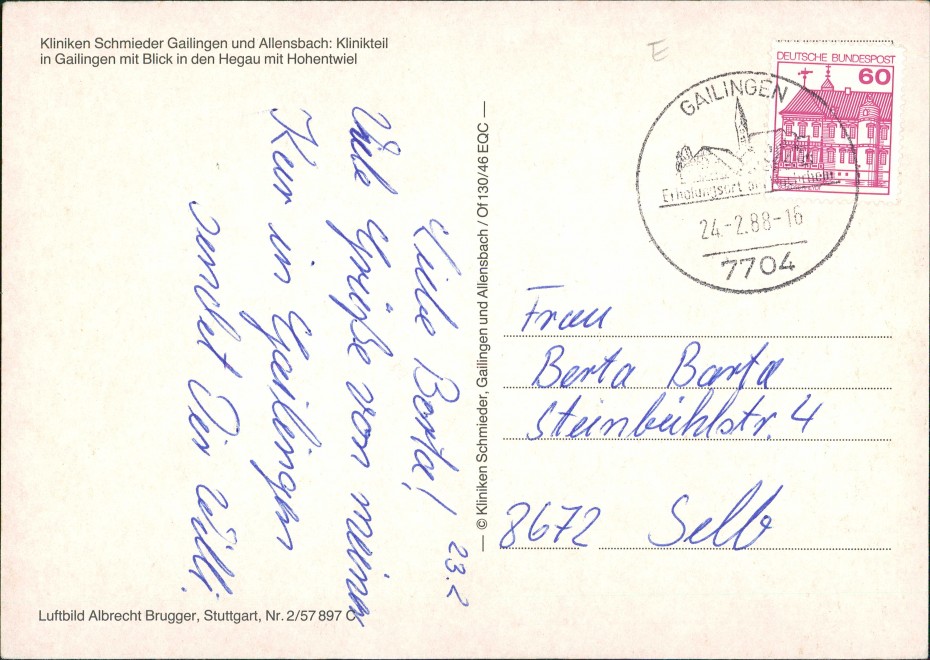 Kliniken Schmieder Gailingen und Allensbach: Klinikteil
in Gailingen mit Blick in den Hegau mit Hohentwiel
E
DEUTSCHE BUNDESPOST
60
GAILINGEN
Erholungsort am Hochrhein
24.-2.88-16
7704
23.2
Liebe Berta!
Viele Grüße von meiner
Kur in Gailingen
sendet Dir Willi.
© Kliniken Schmieder, Gailingen und Allensbach / Of 130/46 EQC
Frau
Berta Barta
Steinbühlstr. 4
8672 Selb
Luftbild Albrecht Brugger, Stuttgart, Nr. 2/57 897 C